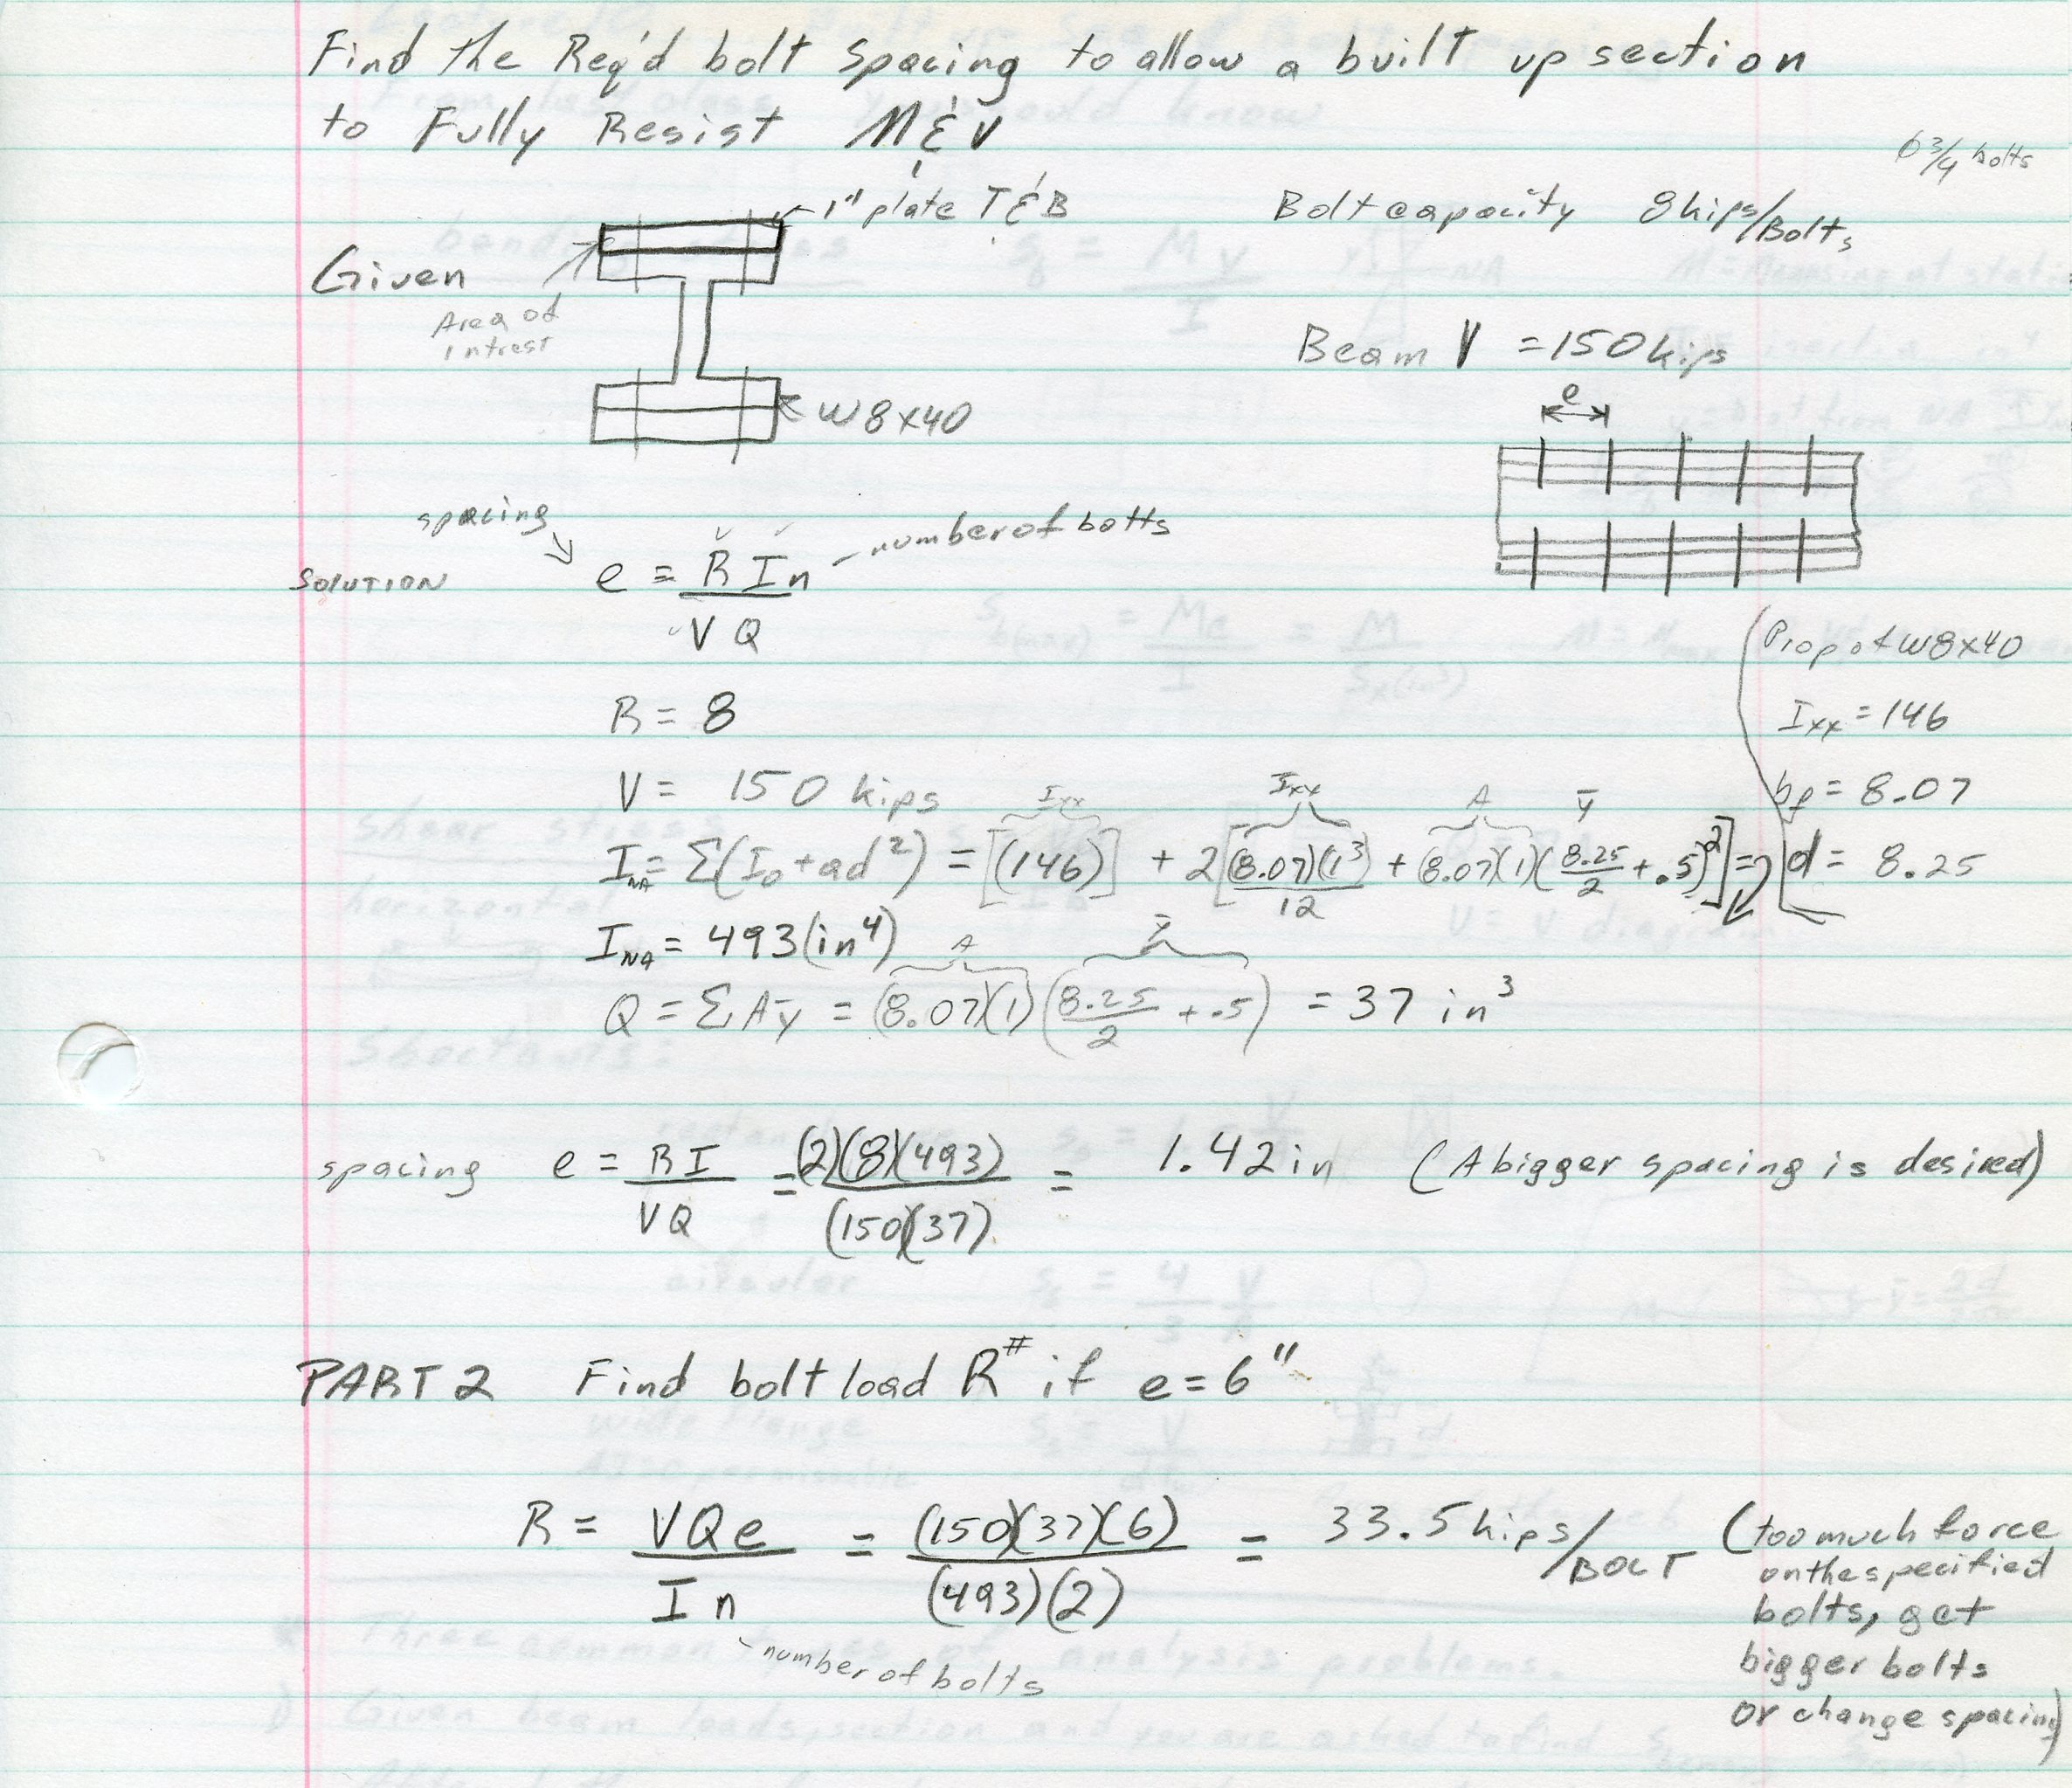 Find the Req'd bolt spacing to allow a built up section
to Fully Resist M & V
6 3/4 bolts
1" plate T & B
Bolt capacity 8 kips/Bolts
Given
Area of
intrest
Beam V = 150 kips
e
W8x40
spacing
number of botts
SOLUTION e = R I n / V Q
Prop of W8x40
Ixx = 146
R = 8
V = 150 kips
bf = 8.07
Ixx Ixx A ȳ
I_NA = Σ(I₀ + ad²) = [(146)] + 2[(8.07)(1³)/12 + (8.07)(1)(8.25/2 + .5)²] =
d = 8.25
I_NA = 493 (in⁴)
A ȳ
Q = ΣAȳ = (8.07)(1)(8.25/2 + .5) = 37 in³
spacing e = RI/VQ = (2)(8)(493)/(150)(37) = 1.42 in (A bigger spacing is desired)
PART 2 Find bolt load R# if e = 6"
R = VQe/In = (150)(37)(6)/(493)(2) = 33.5 kips/BOLT
(too much force
on the specified
bolts, get
bigger bolts
or change spacing)
number of bolts